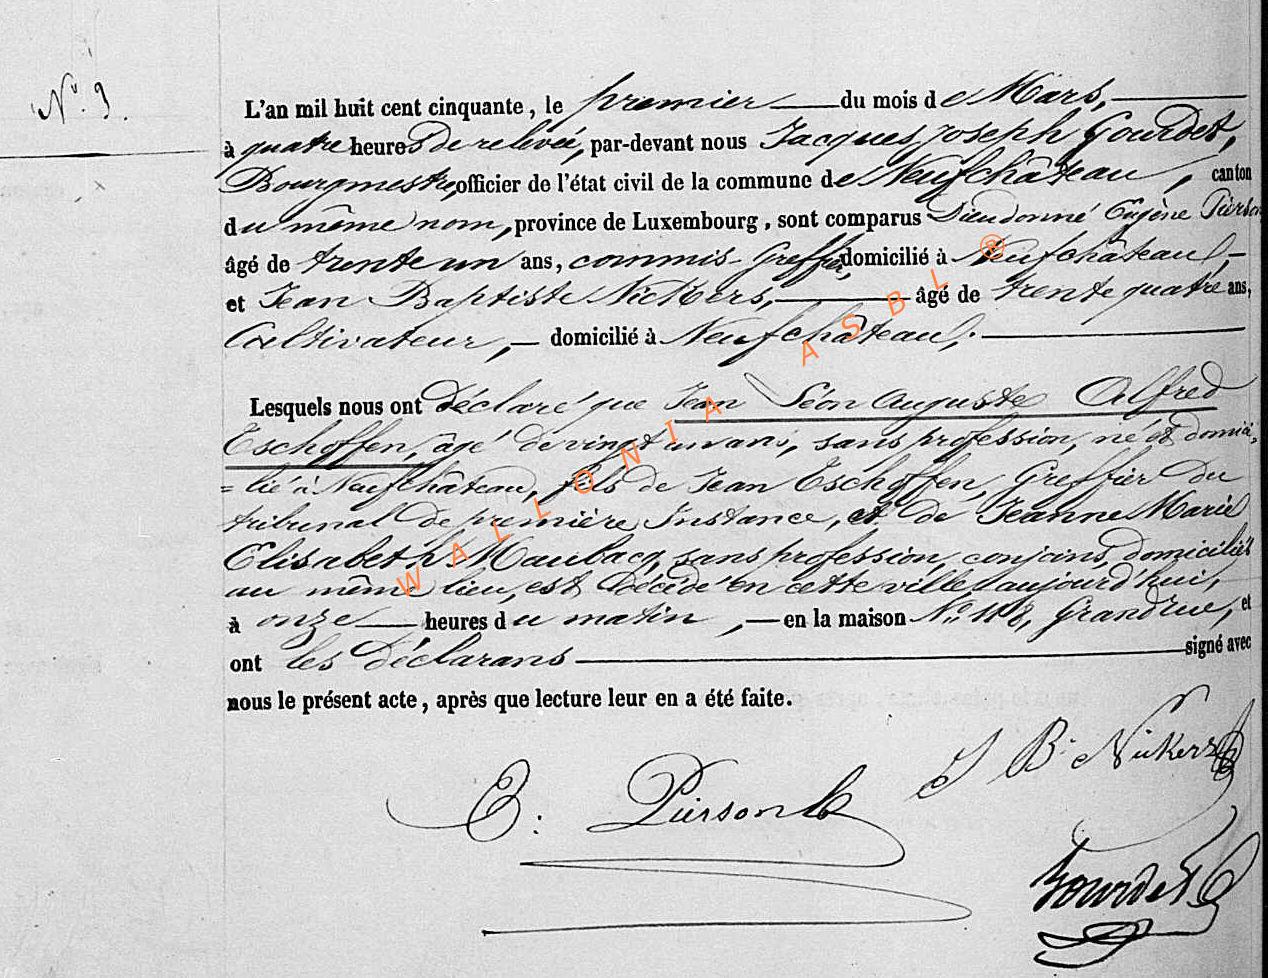 N° 9.
L'an mil huit cent cinquante, le premier du mois de Mars,
à quatre heures de relevée, par-devant nous Jacques Joseph Gourdet,
Bourgmestre, officier de l'état civil de la commune de Neufchâteau, canton
du même nom, province de Luxembourg, sont comparus Dieudonné Eugène Pierson
âgé de trente un ans, commis-Greffier, domicilié à Neufchâteau,
et Jean Baptiste Nickers, âgé de trente quatre ans,
Cultivateur, domicilié à Neufchâteau;
Lesquels nous ont déclaré que Jean Léon Auguste Alfred
Eschoffen, âgé de vingt un ans, sans profession, né et domici-
=lié à Neufchâteau, fils de Jean Eschoffen, Greffier du
tribunal de première Instance, et de Jeanne Marie
Elisabeth Maubacq, sans profession, conjoins, domiciliés
au même lieu, est décédé en cette ville, aujourd'hui,
à onze heures du matin, en la maison N° 118, Grand'rue, et
ont les déclarans signé avec
nous le présent acte, après que lecture leur en a été faite.
J B Nickers
E: Pierson
Gourdet
WALLONIA ASBL ®